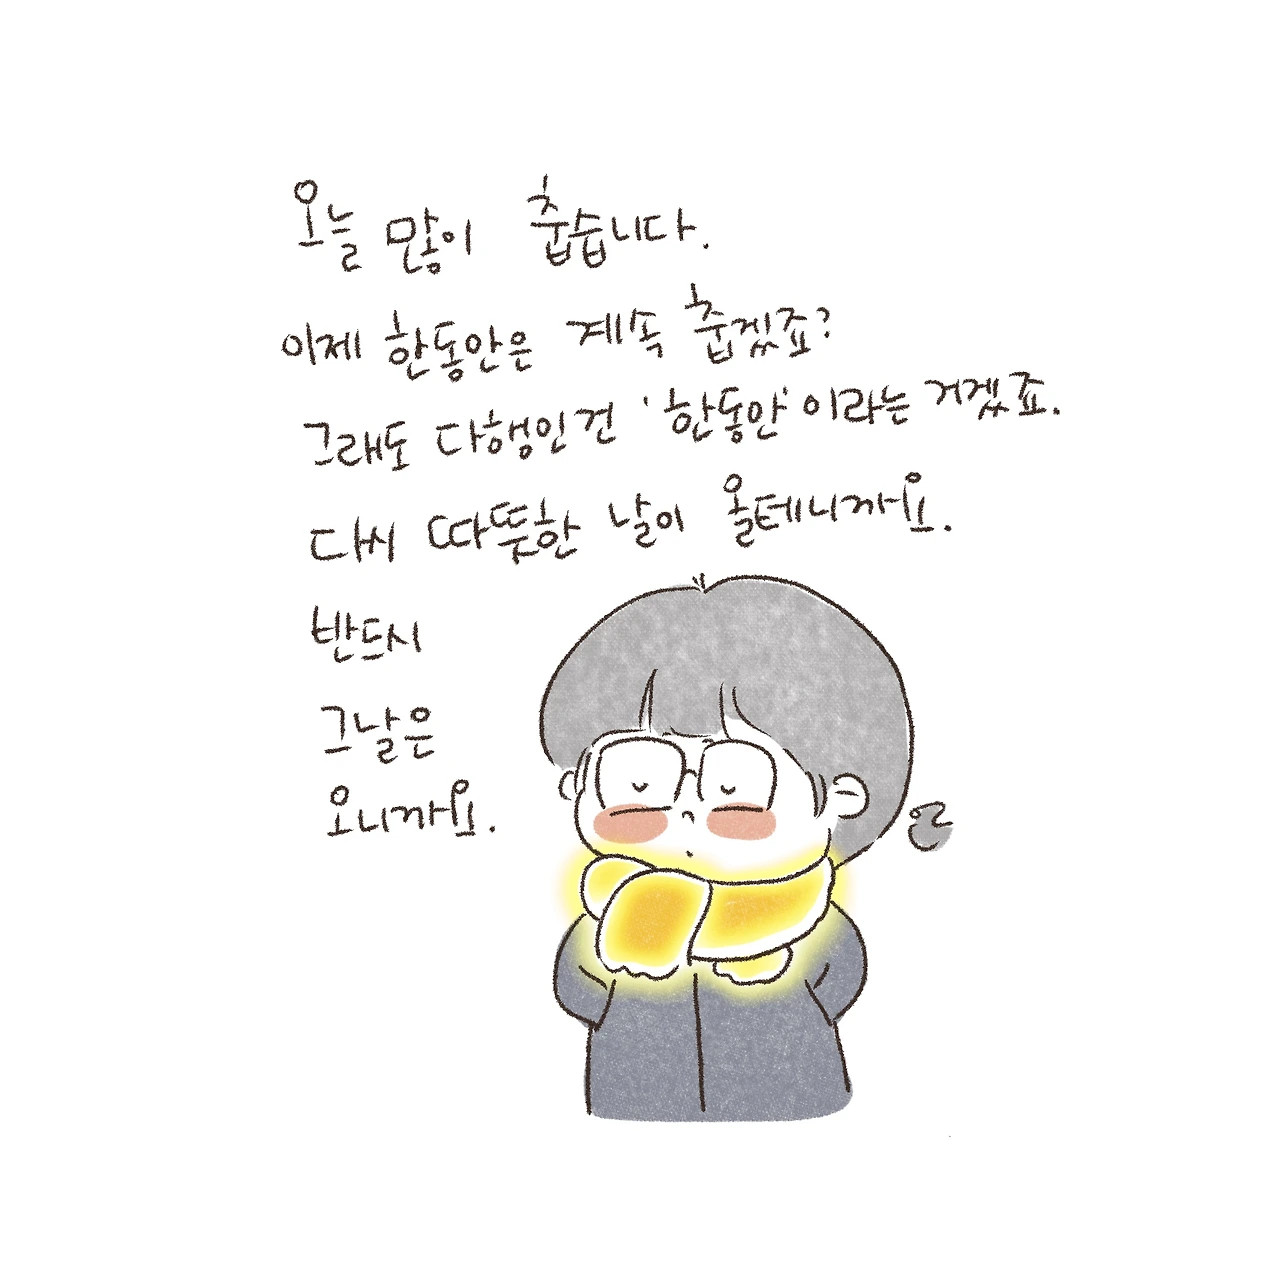 오늘 많이 춥습니다.
이제 한동안은 계속 춥겠죠?
그래도 다행인건 '한동안'이라는 거겠죠.
다시 따뜻한 날이 올테니까요.
반드시
그날은
오니까요.